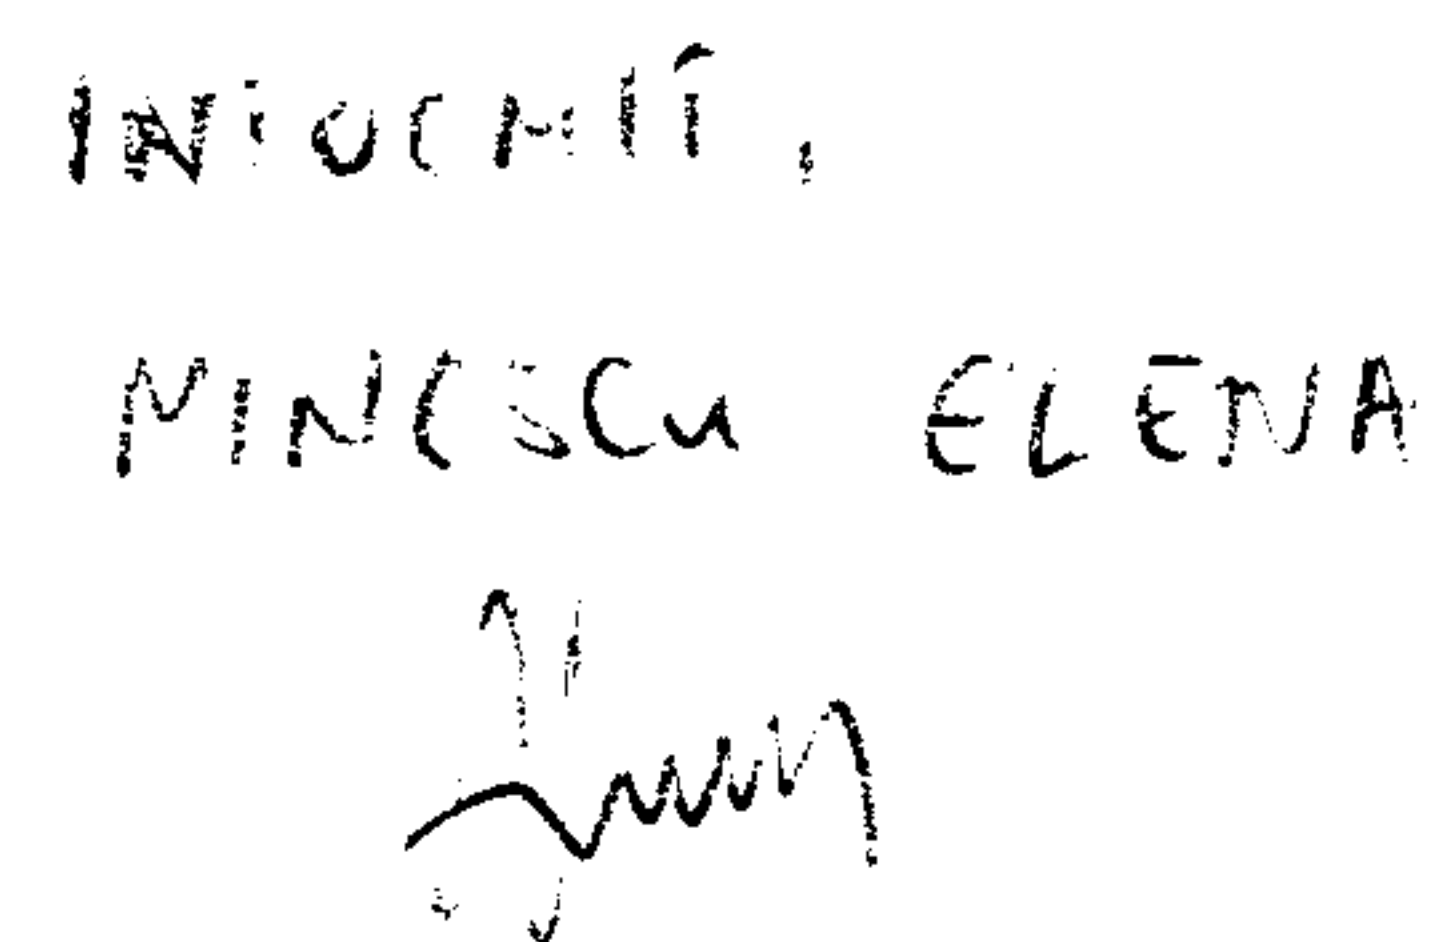 INTOCMIT,
MINCESCU ELENA